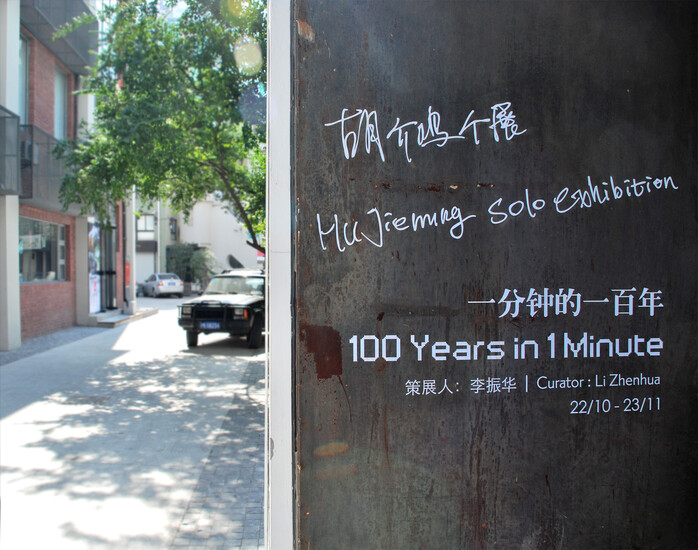 胡介鸣个展
Hu Jieming solo exhibition
一分钟的一百年
100 Years in 1 Minute
策展人：李振华 | Curator : Li Zhenhua
22/10 - 23/11